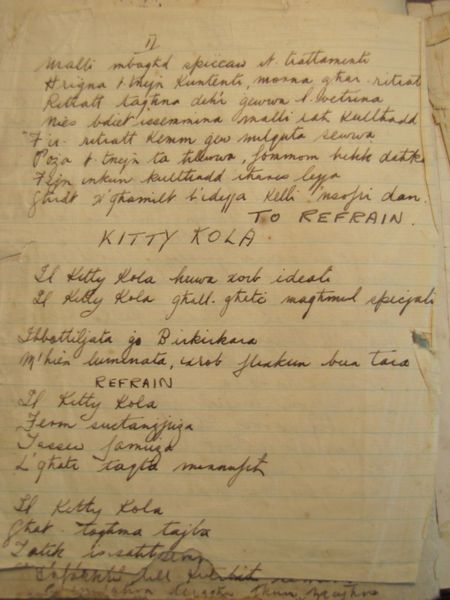 II
Malli mbaghd spiccaw it trattamenti
Hrigna t tnejn kuntenti, morna ghar-ritrat
Ritratt taghna dehr gewwa l-vetrina
Nies bdiet issemmina malli rah kulhadd
F'ir-ritratt kemm gew milquta sewwa
Poza t tnejn ta tilwwa, fommom
Fejn inkun kulhadd ihares lejja
Ghidt x'ghamilt b'idejja Kelli nsofri dan.
TO REFRAIN.
KITTY KOLA
Il Kitty Kola huwa xorb ideali
Il Kitty Kola ghall-ghatx maghmul specjali
Ibbottiljata go Birkirkara
M'hien luminata, xorob
REFRAIN
Il Kitty Kola
Ferm
Tassew famuza
L'ghatx taqta minnufih
Il Kitty Kola
Ghat-toghma tajba
Tatik is-sahha